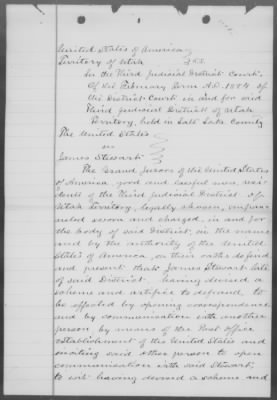 United States of America
Territory of Utah } S.S.
In the Third Judicial District Court.
Of the February Term A.D. 1884 of
the District Court in and for said
Third Judicial District of Utah
Territory, held in Salt Lake County
The United States
vs
James Stewart
The Grand Jurors of the United States
of America, good and lawful men, resi-
dents of the Third Judicial District of
Utah Territory, legally chosen, empan-
neled sworn and charged, in and for
the body of said District, in the name
and by the authority of the United
States of America, on their oaths do find
and present that James Stewart late
of said District having devised a
scheme and artifice to defraud, to
be effected by opening correspondence
and by communication with another
person, by means of the Post office
establishment of the United States and
inciting said other person to open
communication with said Stewart;
to wit: having devised a scheme and